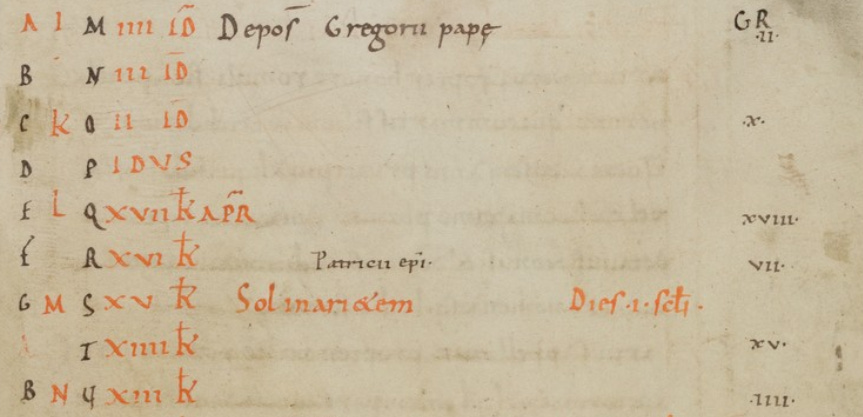 A I M IIII ID Depos Gregorii papę GR ·II·
B N III ID
C K O II ID ·X·
D P IDVS
E L Q XVII K APR XVIII·
F R XVI K Patricii epi· VII·
G M S XV K Sol in arietem Dies·I·scli·
A T XIIII K XV·
B N V XIII K ·IIII·